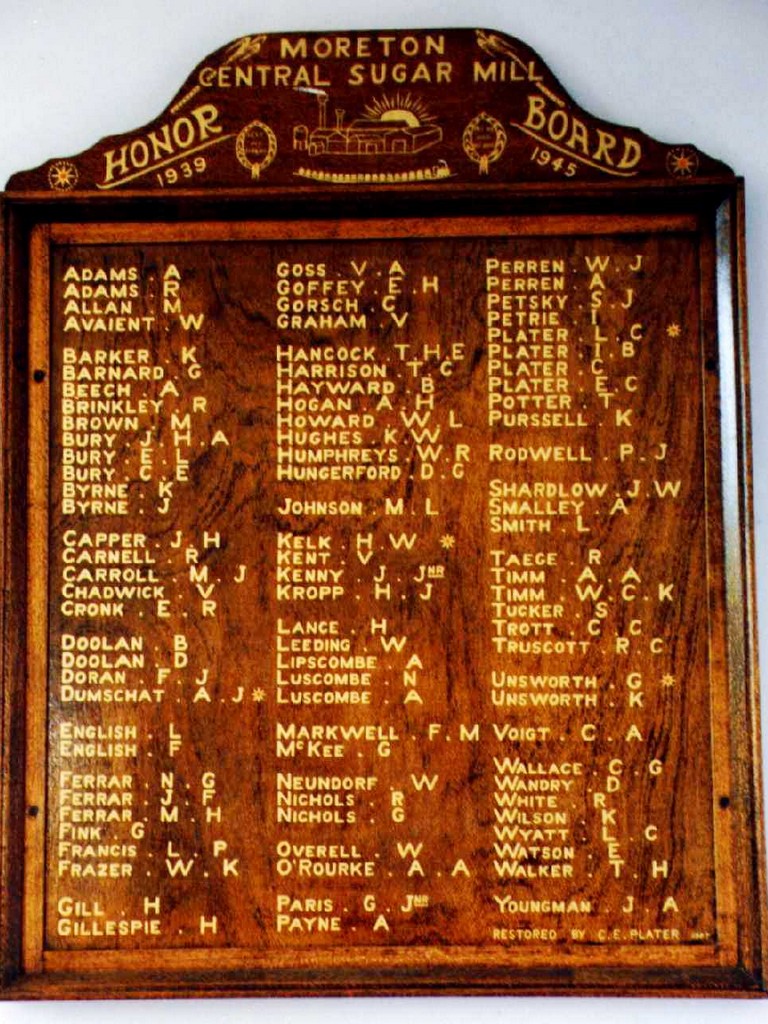 MORETON
CENTRAL SUGAR MILL
HONOR BOARD
1939 1945
ADAMS . A
ADAMS . R
ALLAN . M
AVAIENT . W
BARKER . K
BARNARD . G
BEECH . A
BRINKLEY . R
BROWN . M
BURY . J . H . A
BURY . E . L
BURY . C . E
BYRNE . K
BYRNE . J
CAPPER . J . H
CARNELL . R
CARROLL . M . J
CHADWICK . V
CRONK . E . R
DOOLAN . B
DOOLAN . D
DORAN . F . J
DUMSCHAT . A . J *
ENGLISH . L
ENGLISH . F
FERRAR . N . G
FERRAR . J . F
FERRAR . M . H
FINK . G
FRANCIS . L . P
FRAZER . W . K
GILL . H
GILLESPIE . H
GOSS . V . A
GOFFEY . E . H
GORSCH . C
GRAHAM . V
HANCOCK . T . H . E
HARRISON . T . C
HAYWARD . B
HOGAN . A . H
HOWARD . W . L
HUGHES . K . W
HUMPHREYS . W . R
HUNGERFORD . D . G
JOHNSON . M . L
KELK . H . W *
KENT . V
KENNY . J . JNR
KROPP . H . J
LANCE . H
LEEDING . W
LIPSCOMBE . A
LUSCOMBE . N
LUSCOMBE . A
MARKWELL . F . M
McKEE . G
NEUNDORF . W
NICHOLS . R
NICHOLS . G
OVERELL . W
O'ROURKE . A . A
PARIS . G . JNR
PAYNE . A
PERREN . W . J
PERREN . A
PETSKY . S . J
PETRIE . I
PLATER . L . C *
PLATER . I . B
PLATER . C
PLATER . E . C
POTTER . T
PURSSELL . K
RODWELL . P . J
SHARDLOW . J . W
SMALLEY . A
SMITH . L
TAEGE . R
TIMM . A . A
TIMM . W . C . K
TUCKER . S
TROTT . C . C
TRUSCOTT . R . C
UNSWORTH . G *
UNSWORTH . K
VOIGT . C . A
WALLACE . C . G
WANDRY . D
WHITE . R
WILSON . K
WYATT . L . C
WATSON . E
WALKER . T . H
YOUNGMAN . J . A
RESTORED BY C.E. PLATER